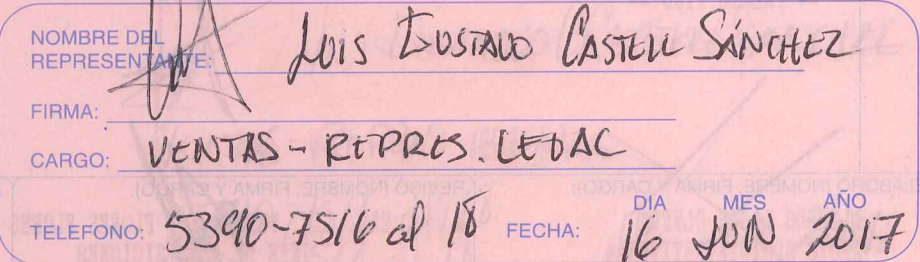 NOMBRE DEL
REPRESENTANTE: LUIS GUSTAVO CASTELL SÁNCHEZ
FIRMA:
CARGO: VENTAS - REPRES. LEGAL
TELEFONO: 5390-7516 al 18 FECHA: DIA 16 MES JUN AÑO 2017